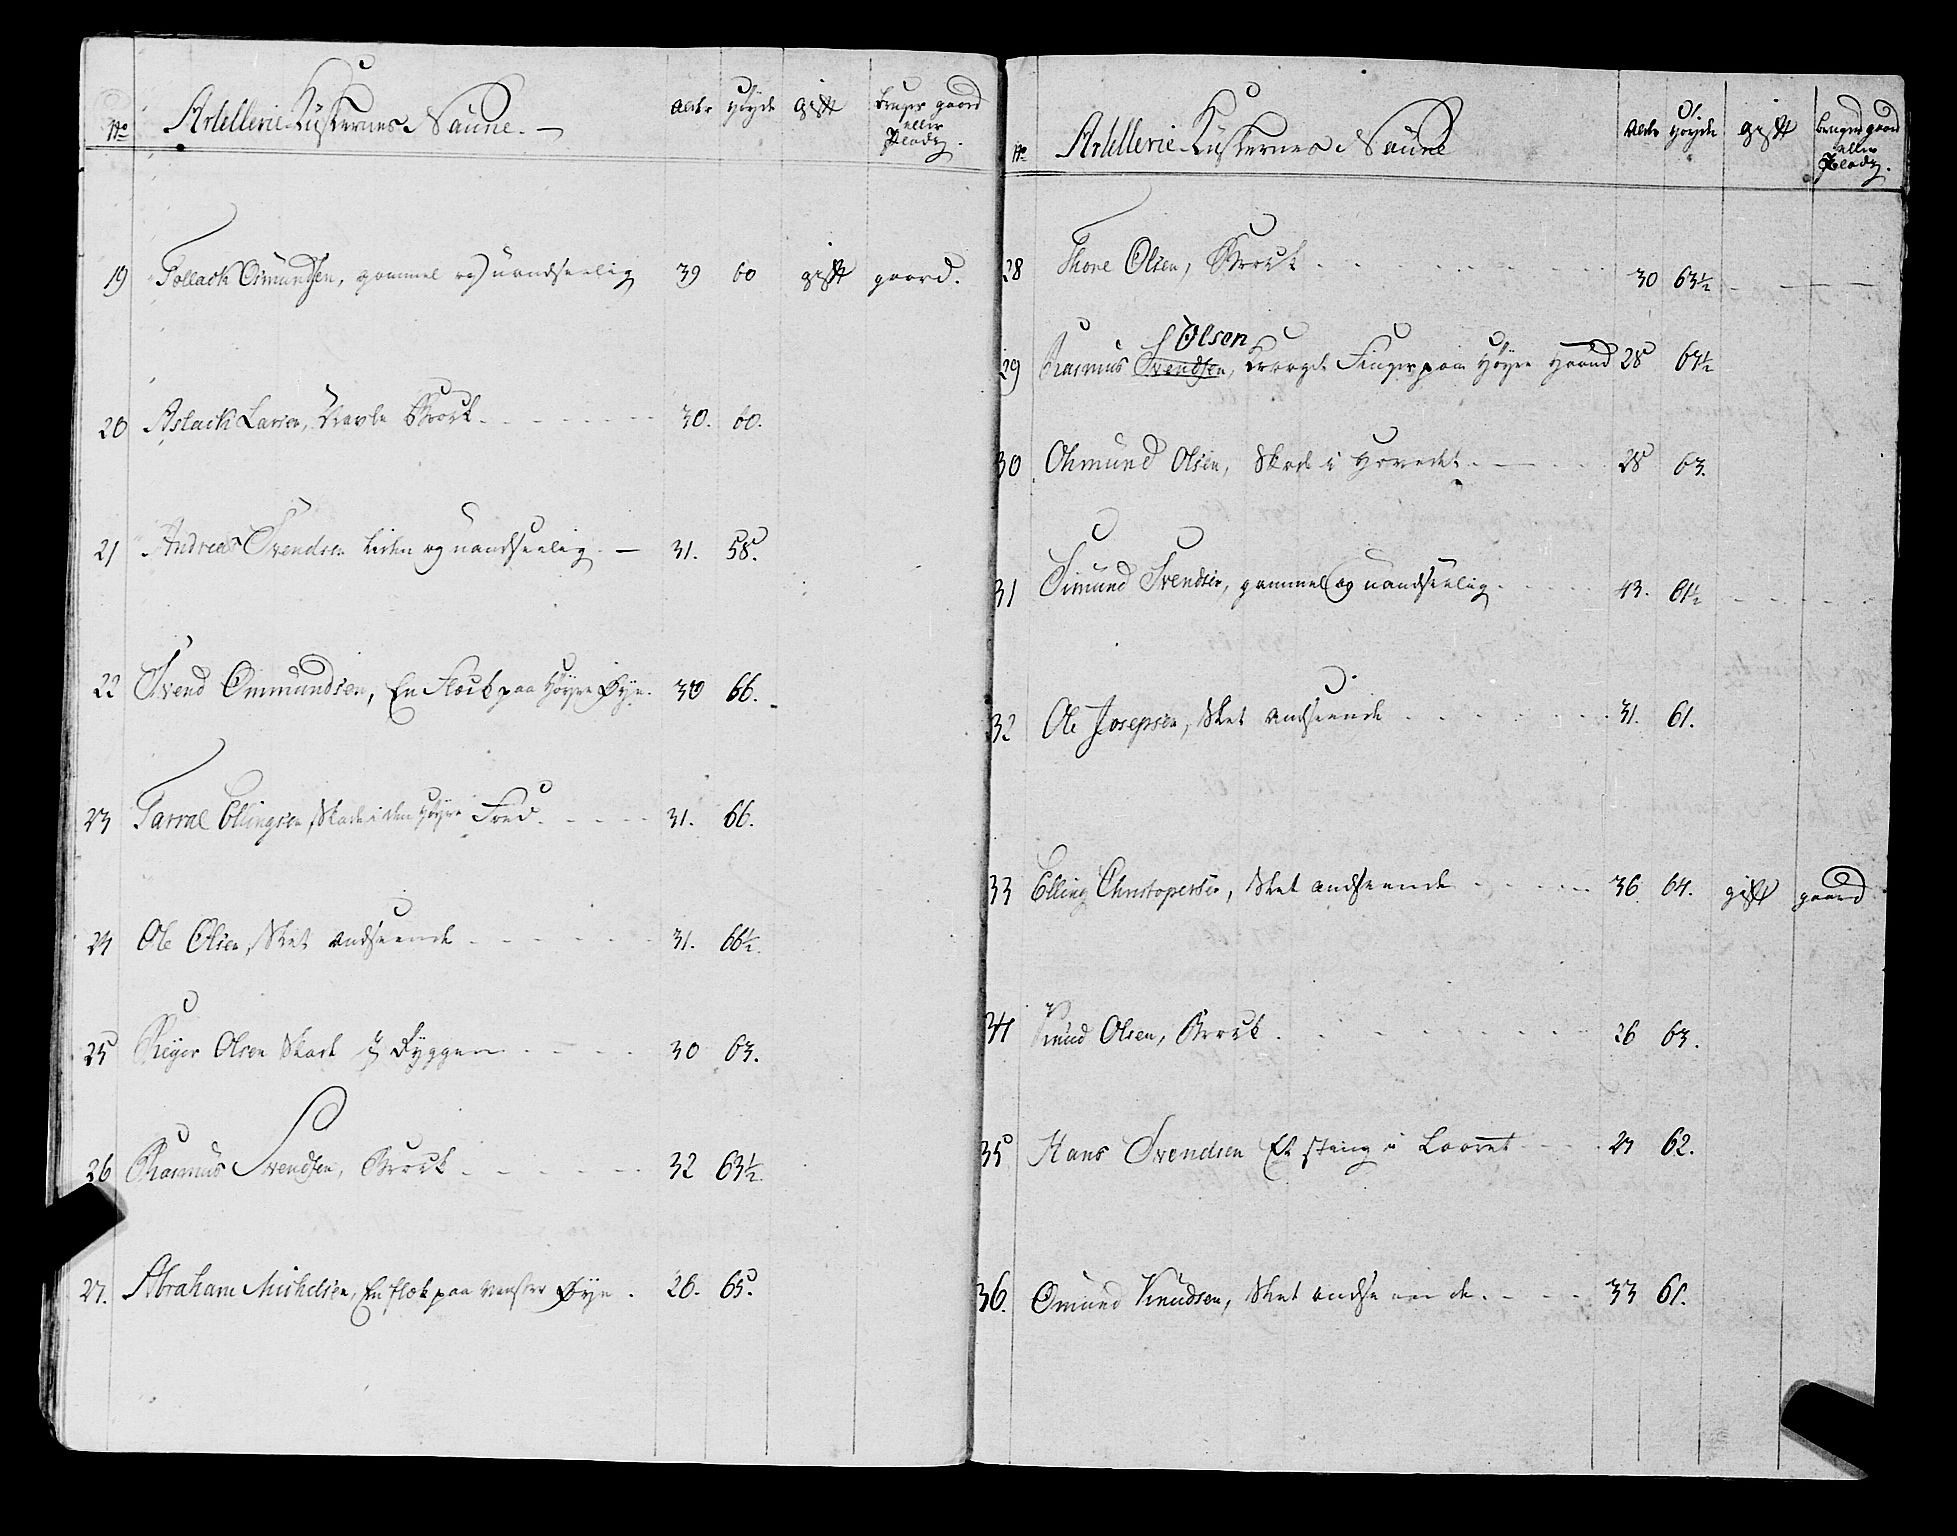 No Artellerie Kuskernes Naune. — Alder Høyde gift bruger gaard
eller
Pladz.
19 Tollack Osmundsen, gammel og uandseelig 39 60 gift gaard.
20 Aslack Larsen, Navle Brock 30. 60.
21 Andreas Svendsen liden og uandseelig — 31. 58.
22 Svend Ommundsen, En Fleck paa Høyre Øye. 30 66.
23 Tarral Ellingsen, Skade i den høyre Foed. 31. 66.
24 Ole Olsen, Slet andseende 31. 66½.
25 Reyer Olsen Skade i Ryggen 30 63.
26 Rasmus Svendsen, Brock 32 63½.
27. Abraham Michelsen, En flek paa venster Øye. 26. 65.
No Artellerie Kuskernes Naune Alder Høyde gift bruger gaard
eller
Pladz.
28 Thore Olsen, Brock 30 63½
Olsen
29 Rasmus Svendsen, Kroogde Finger paa Høyre Haand 28 61½
30 Ohmund Olsen, Skade i Hovedet 28 63.
31 Simund Svendsen, gammel og uandseelig 43. 61½
32 Ole Josepsen, Slet andseende 31. 61.
33 Elling Christopersen, Slet andseende 36 64. gift gaard
34 Knud Olsen, Brock 26 63.
35 Hans Svendsen Et sting i Laaret 27 62.
36. Omund Knudsen, Slet andseende. 33 61.